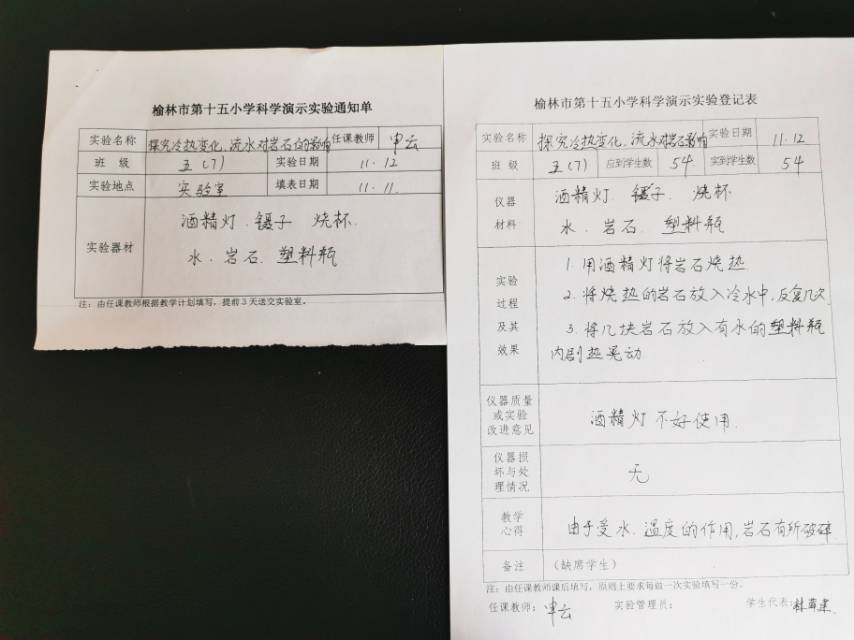 榆林市第十五小学科学演示实验通知单
实验名称 探究冷热变化、流水对岩石的影响 任课教师 申云
班 级 五(7) 实验日期 11.12
实验地点 实验室 填表日期 11.11.
实验器材 酒精灯、镊子 烧杯
水、岩石、塑料瓶
注：由任课教师根据教学计划填写，提前3天送交实验室。
榆林市第十五小学科学演示实验登记表
实验名称 探究冷热变化、流水对岩石影响 实验日期 11.12
班 级 五(7) 应到学生数 54 实到学生数 54
仪器 材料
酒精灯、镊子、烧杯
水、岩石、塑料瓶
实验 过程 及其 效果
1.用酒精灯将岩石烧热.
2.将烧热的岩石放入冷水中,反复几次
3.将几块岩石放入有水的塑料瓶
内剧热晃动
仪器质量 或实验 改进意见
酒精灯不好使用.
仪器损 坏与处 理情况
无
教学 心得
由于受水、温度的作用,岩石有所破碎
备注 （缺席学生）
注：由任课教师课后填写，原则上要求每做一次实验填写一份。
任课教师：申云 实验管理员： 学生代表：